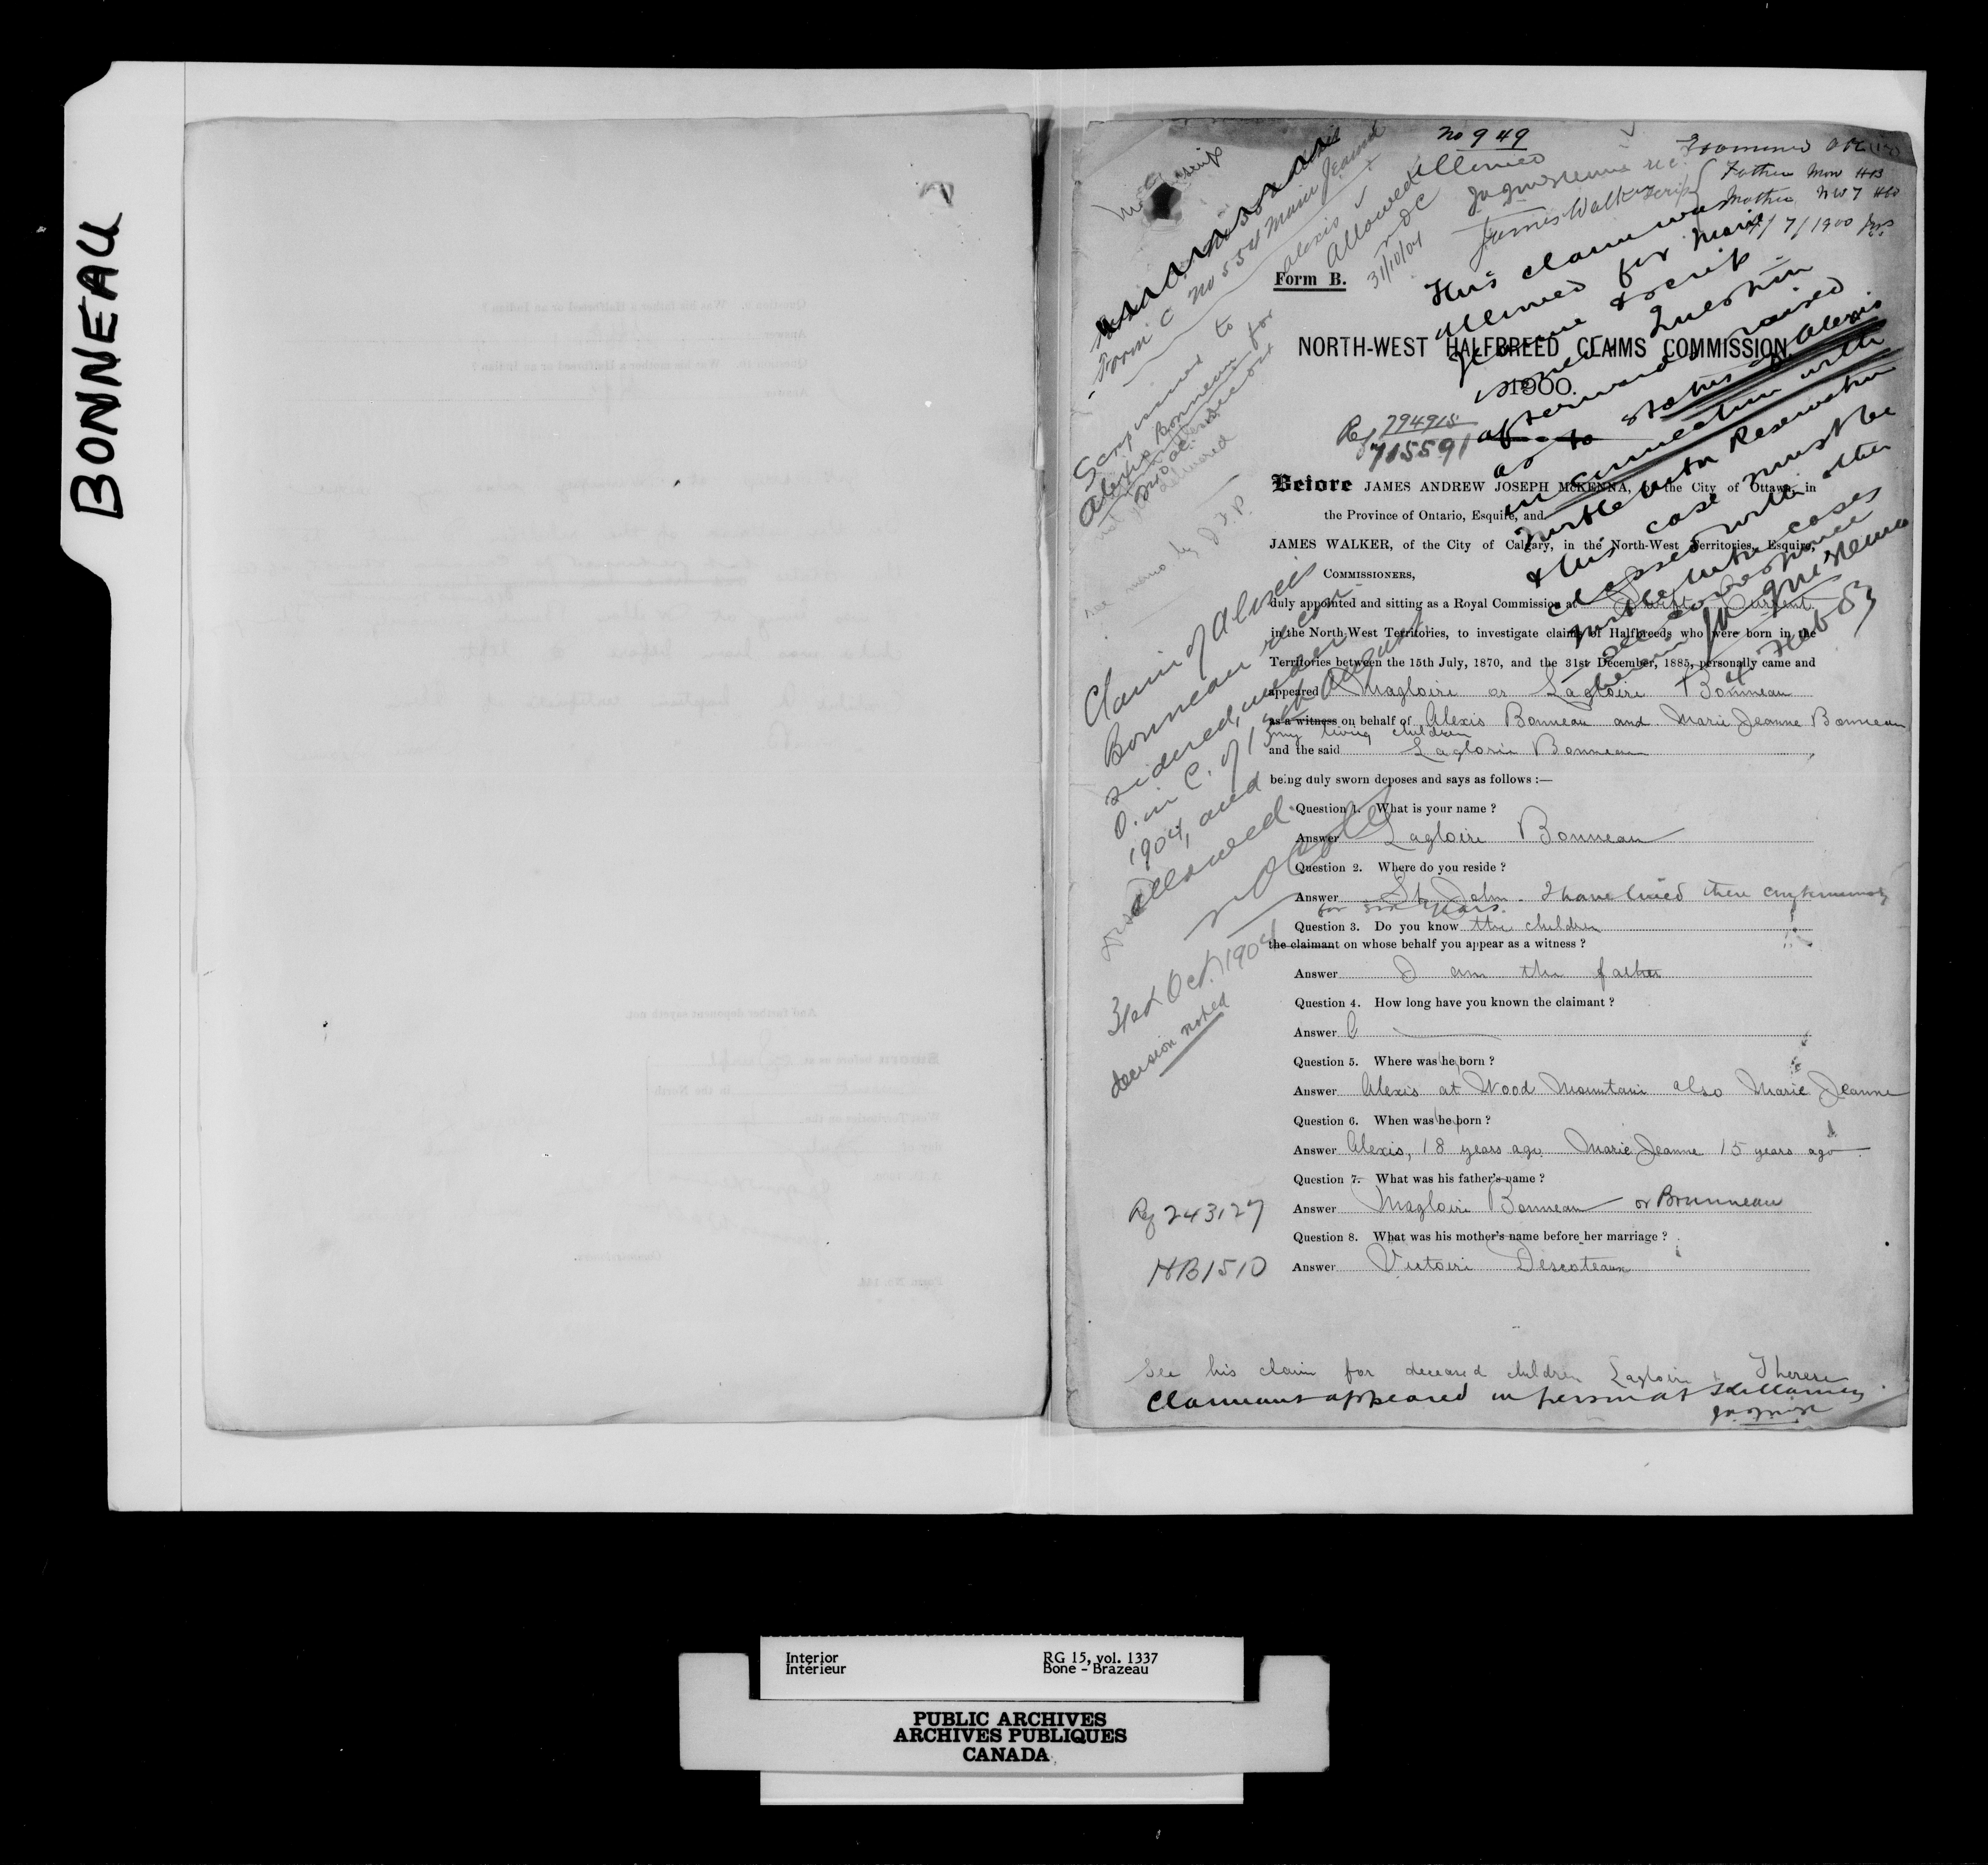 BONNEAU
No 949
Father Man HB
Mother NW7 HB
7/1900
Form C No 554 Marie Jeanne
Alexis
Allowed
NOC
31/10/04
James Walker
Form B.
This claim was
allowed for Marie
Jeanne & scrip
issued. Question
afterwards raised
as to status of Alexis
in connection with
Turtle Mtn Reservation
& this case must be
classed with other
Turtle Mtn cases
See correspondence
herein
4 Feb 03
NORTH-WEST HALFBREED CLAIMS COMMISSION.
1900.
Ref 794915
715591
Scrip issued to
Alexis Bonneau for
not yet delivered
see memo by
Claim of Alexis
Bonneau recon-
sidered, under
O. in C. of 13th August
1904, and
allowed
NOCoté
31st Oct. 1904
decision noted
Before JAMES ANDREW JOSEPH McKENNA, of the City of Ottawa, in
the Province of Ontario, Esquire, and
JAMES WALKER, of the City of Calgary, in the North-West Territories, Esquire,
COMMISSIONERS,
duly appointed and sitting as a Royal Commission at Swift Current
in the North-West Territories, to investigate claims of Halfbreeds who were born in the
Territories between the 15th July, 1870, and the 31st December, 1885, personally came and
appeared Magloire or Lagloire Bonneau
as a witness on behalf of Alexis Bonneau and Marie Jeanne Bonneau
my living children
and the said Lagloire Bonneau
being duly sworn deposes and says as follows :—
Question 1. What is your name ?
Answer Lagloire Bonneau
Question 2. Where do you reside ?
Answer St. John. I have lived there continuously
for six years.
Question 3. Do you know the children
the claimant on whose behalf you appear as a witness ?
Answer I am the father
Question 4. How long have you known the claimant ?
Answer
Question 5. Where was he born ?
Answer Alexis at Wood Mountain also Marie Jeanne
Question 6. When was he born ?
Answer Alexis, 18 years ago. Marie Jeanne 15 years ago
Question 7. What was his father's name ?
Ref 243127
Answer Magloire Bonneau or Brunneau
Question 8. What was his mother's name before her marriage ?
HB1510
Answer Victoire Descoteaux
See his claim for deceased children Lagloire & Therese
Claimant appeared in person at Killarney
Interior
Intérieur
RG 15, vol. 1337
Bone - Brazeau
PUBLIC ARCHIVES
ARCHIVES PUBLIQUES
CANADA